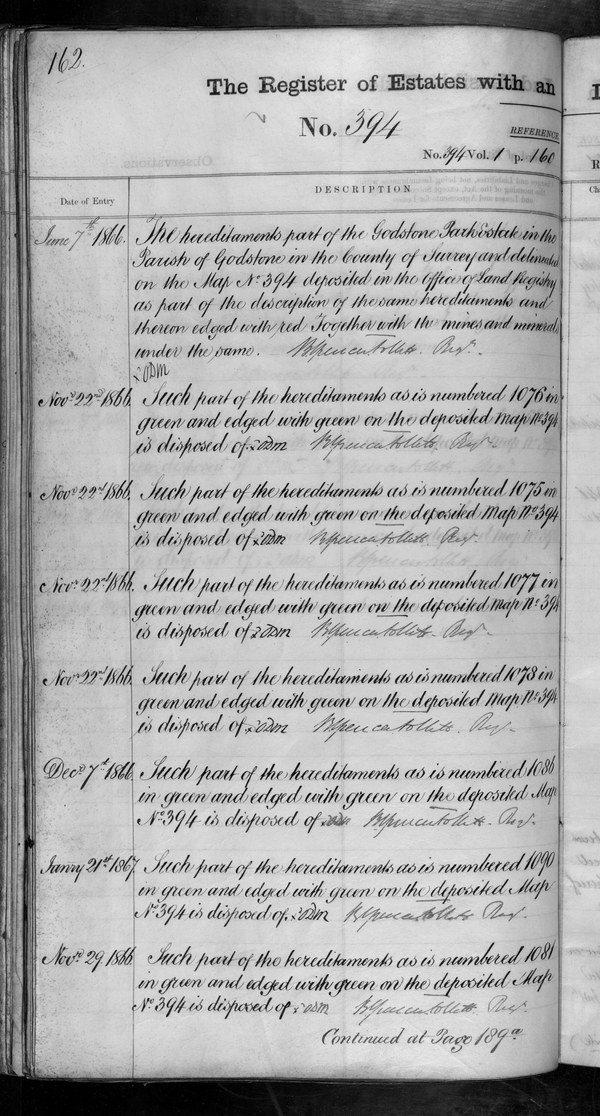 162.
The Register of Estates with an
No. 394
REFERENCE
No. 394 Vol. 1 p. 160
Date of Entry
DESCRIPTION
June 7th 1866. The hereditaments part of the Godstone Park Estate in the
Parish of Godstone in the County of Surrey and delineated
on the Map No 394 deposited in the Office of Land Registry
as part of the description of the same hereditaments and
thereon edged with red Together with the mines and minerals
under the same. Regr.
Novr 22nd 1866. Such part of the hereditaments as is numbered 1076 in
green and edged with green on the deposited Map No 394
is disposed of Regr.
Novr 22nd 1866. Such part of the hereditaments as is numbered 1075 in
green and edged with green on the deposited Map No 394
is disposed of Regr.
Novr 22nd 1866. Such part of the hereditaments as is numbered 1077 in
green and edged with green on the deposited Map No 394
is disposed of Regr.
Novr 22nd 1866. Such part of the hereditaments as is numbered 1078 in
green and edged with green on the deposited Map No 394
is disposed of Regr.
Decr 7th 1866. Such part of the hereditaments as is numbered 1086
in green and edged with green on the deposited Map
No 394 is disposed of Regr.
Janry 21st 1867. Such part of the hereditaments as is numbered 1090
in green and edged with green on the deposited Map
No 394 is disposed of. Regr.
Novr 29 1866 Such part of the hereditaments as is numbered 1081
in green and edged with green on the deposited Map
No 394 is disposed of Regr.
Continued at Page 189a